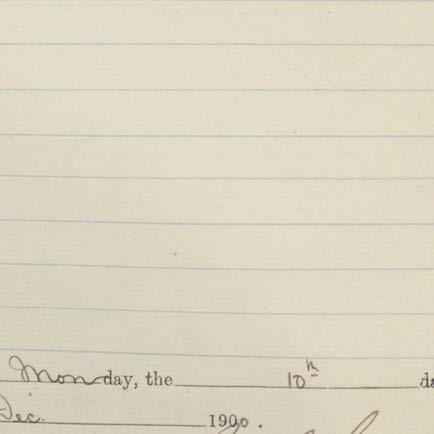 Monday, the 10th da
Dec. 1900.